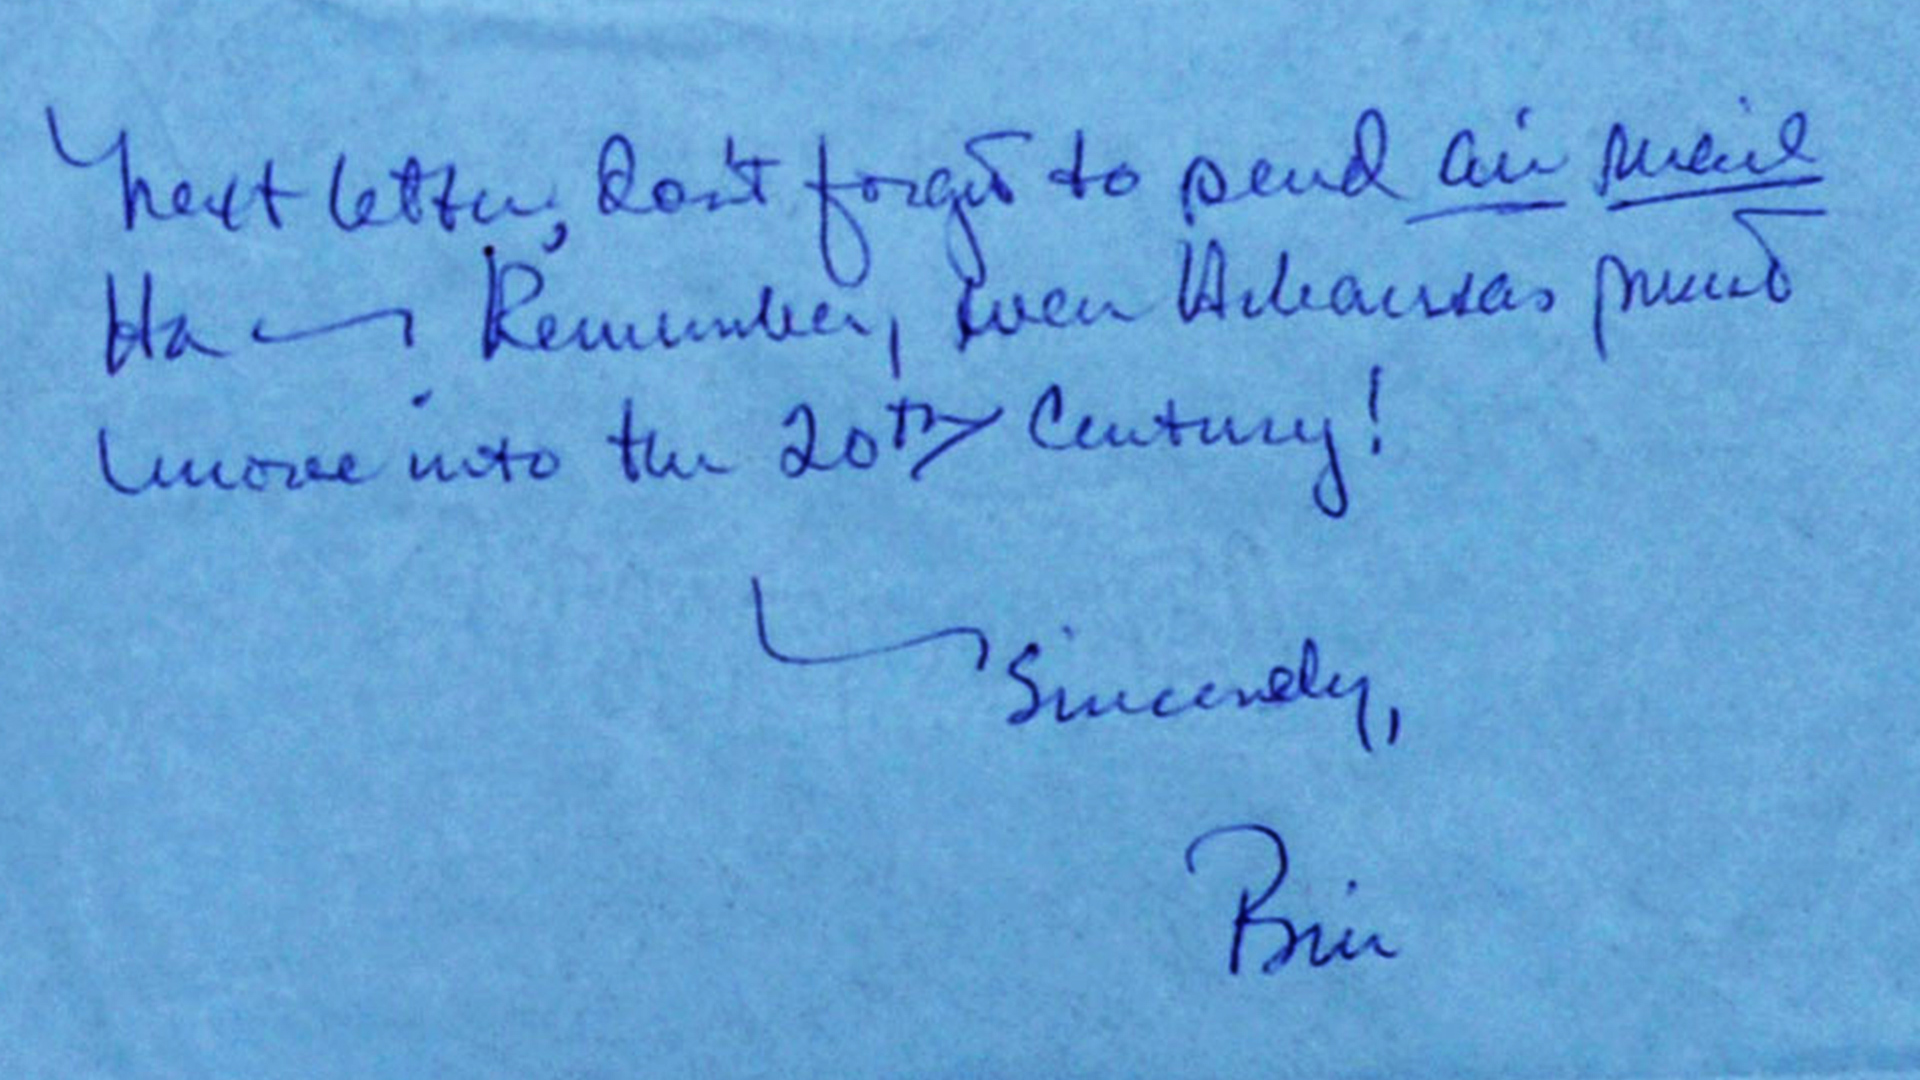 Next letter, don't forget to send air mail
Ha — Remember, even Arkansas must
move into the 20th Century!
Sincerely,